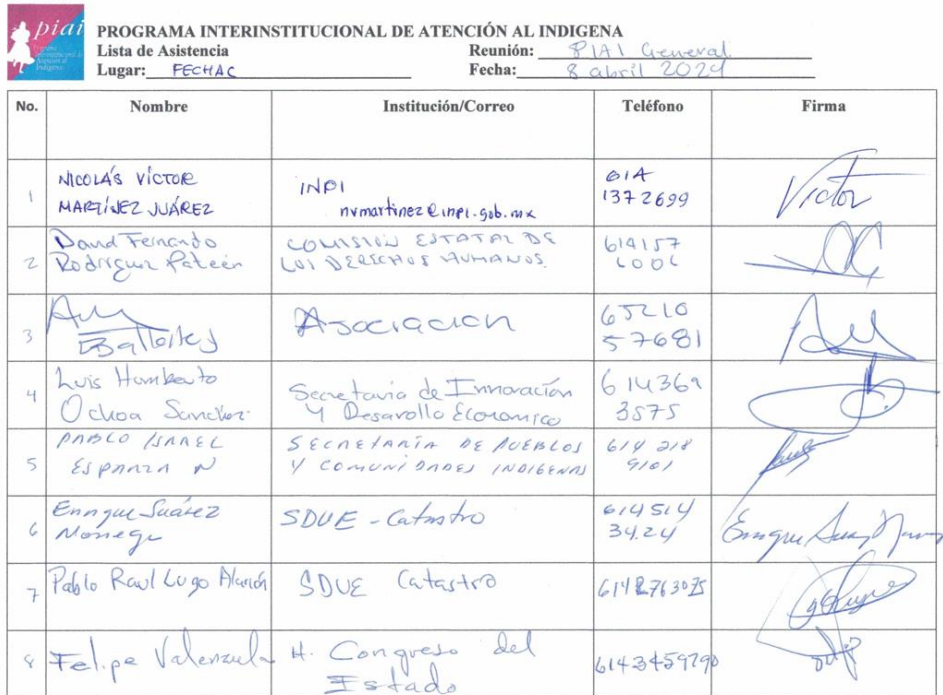 piai
Programa
Interinstitucional de
Atención al
Indígena
PROGRAMA INTERINSTITUCIONAL DE ATENCIÓN AL INDIGENA
Lista de Asistencia
Reunión: PIAI General
Lugar: FECHAC
Fecha: 8 abril 2024
No. Nombre Institución/Correo Teléfono Firma
1 NICOLÁS VÍCTOR MARTÍNEZ JUÁREZ INPI nvmartinez@inpi.gob.mx 614 1372699 Victor
2 David Fernando Rodríguez COMISIÓN ESTATAL DE LOS DERECHOS HUMANOS 614157
3 Asociacion 65210 57681
4 Luis Humberto Ochoa Sanchez Secretaria de Innovación y Desarollo Economico 614369 3575
5 PABLO ISRAEL ESPARZA N SECRETARÍA DE PUEBLOS Y COMUNIDADES INDIGENAS 614 218 9101
6 Enrique Suárez Noriega SDUE - Catastro 614514 34.24
7 Pablo Raul Lugo Alarcón SDUE Catastro
8 Felipe Valenzuela H. Congreso del Estado 6143459790